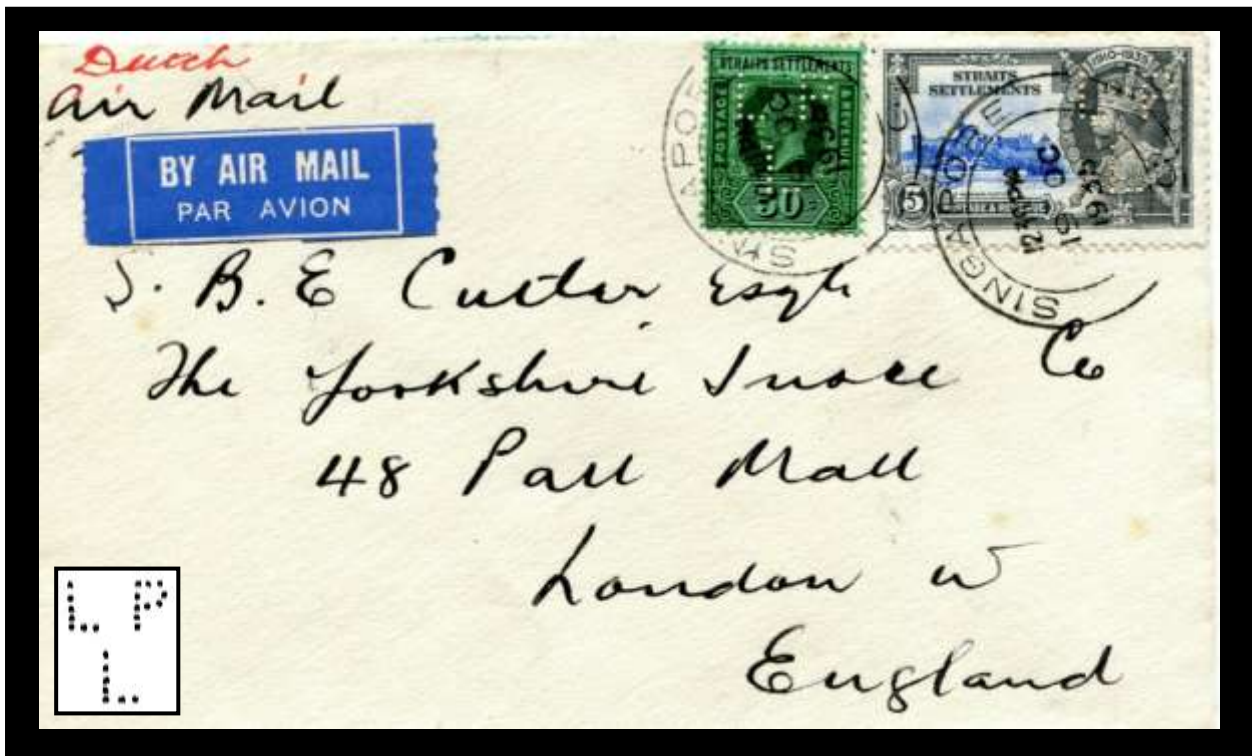 Dutch
Air Mail
BY AIR MAIL
PAR AVION
STRAITS SETTLEMENTS
POSTAGE
REVENUE
50
1910-1935
STRAITS
SETTLEMENTS
5
SINGAPORE
S. B. E Cutler Esqre
The Yorkshire Insce Co
48 Pall Mall
London W
England
L P
L